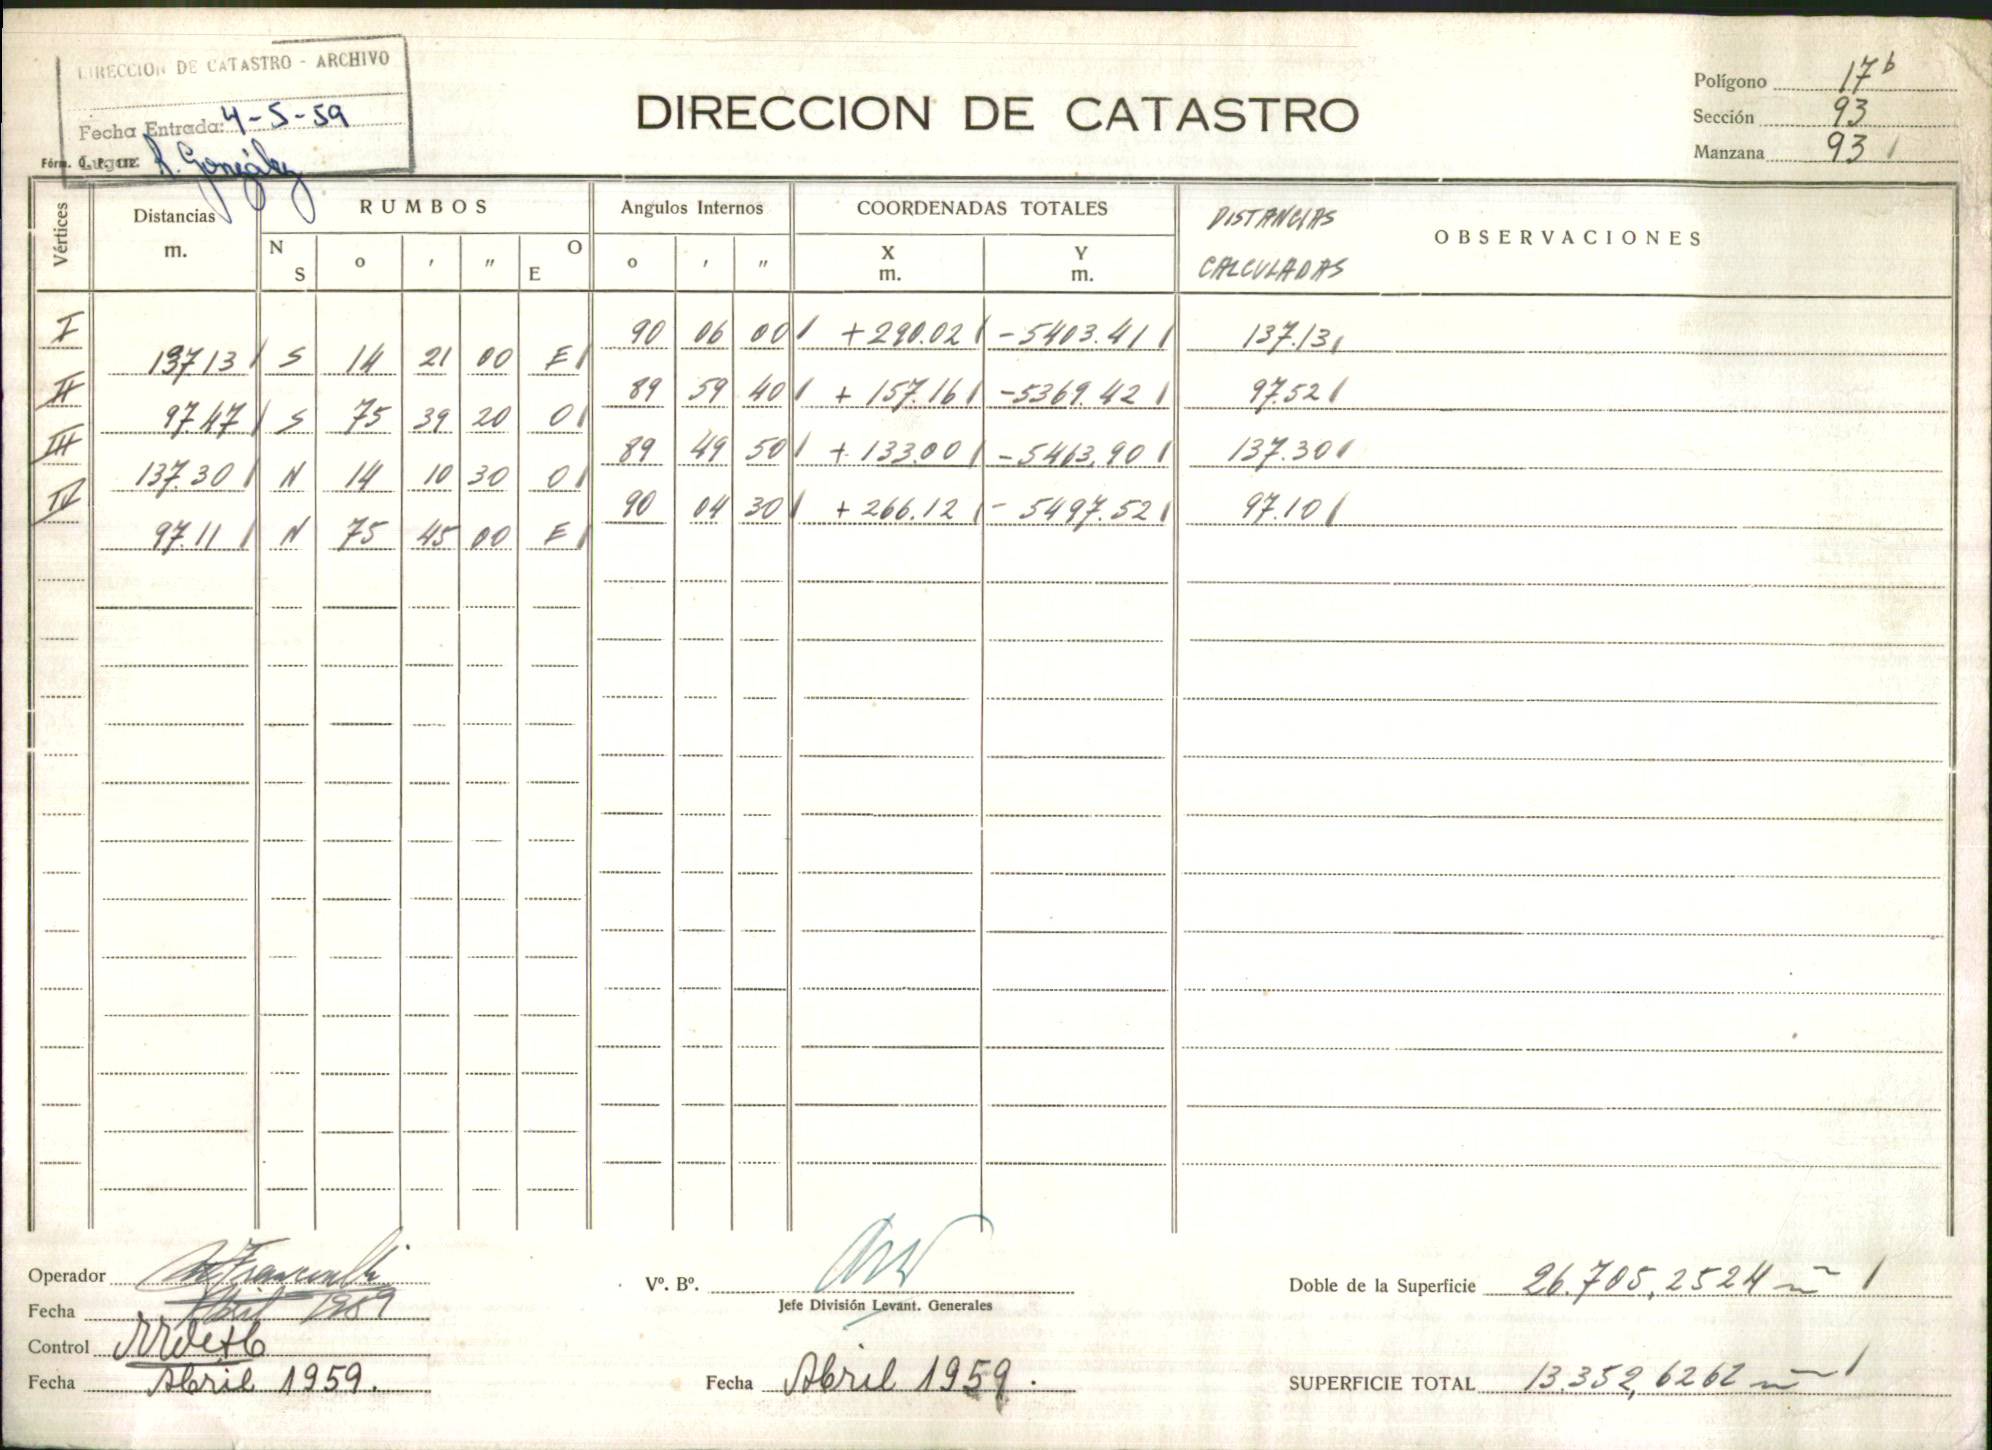 DIRECCION DE CATASTRO - ARCHIVO
Fecha Entrada: 4-5-59
R. González
DIRECCION DE CATASTRO
Polígono 17b
Sección 93
Manzana 93
Vértices Distancias m. RUMBOS Angulos Internos COORDENADAS TOTALES DISTANCIAS CALCULADAS OBSERVACIONES
N S ° ' " O E ° ' " X m. Y m.
I 90 06 00 +290.02 -5403.41 137.13
137.13 S 14 21 00 E
II 89 59 40 +157.16 -5369.42 97.52
97.47 S 75 39 20 O
III 89 49 50 +133.00 -5463.90 137.30
137.30 N 14 10 30 O
IV 90 04 30 +266.12 -5497.52 97.10
97.11 N 75 45 00 E
Operador
Fecha Abril 1959
Control
Fecha Abril 1959.
Vº. Bº.
Jefe División Levant. Generales
Fecha Abril 1959.
Doble de la Superficie 26.705,2524
SUPERFICIE TOTAL 13.352,6262